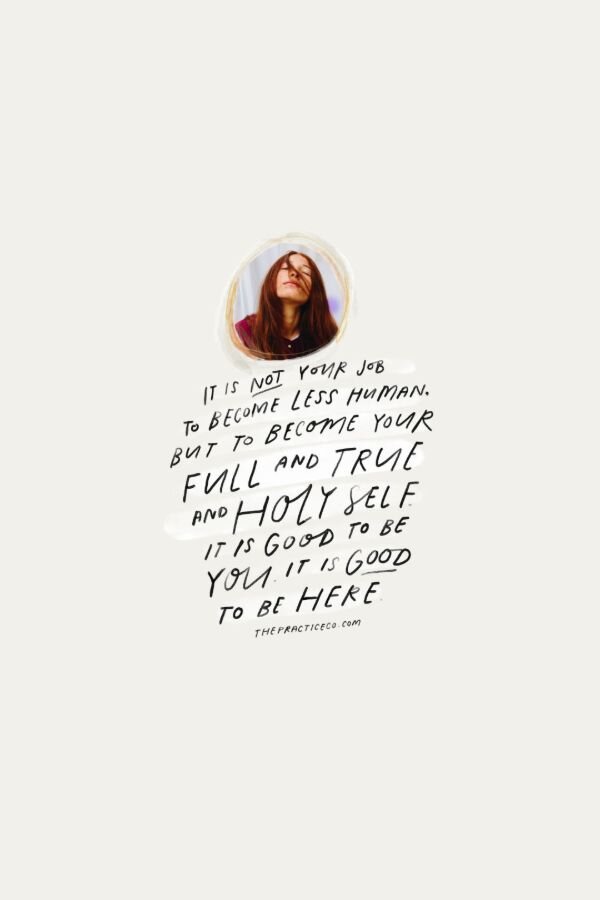 IT IS NOT YOUR JOB
TO BECOME LESS HUMAN.
BUT TO BECOME YOUR
FULL AND TRUE
AND HOLY SELF.
IT IS GOOD TO BE
YOU. IT IS GOOD
TO BE HERE.
THEPRACTICECO.COM